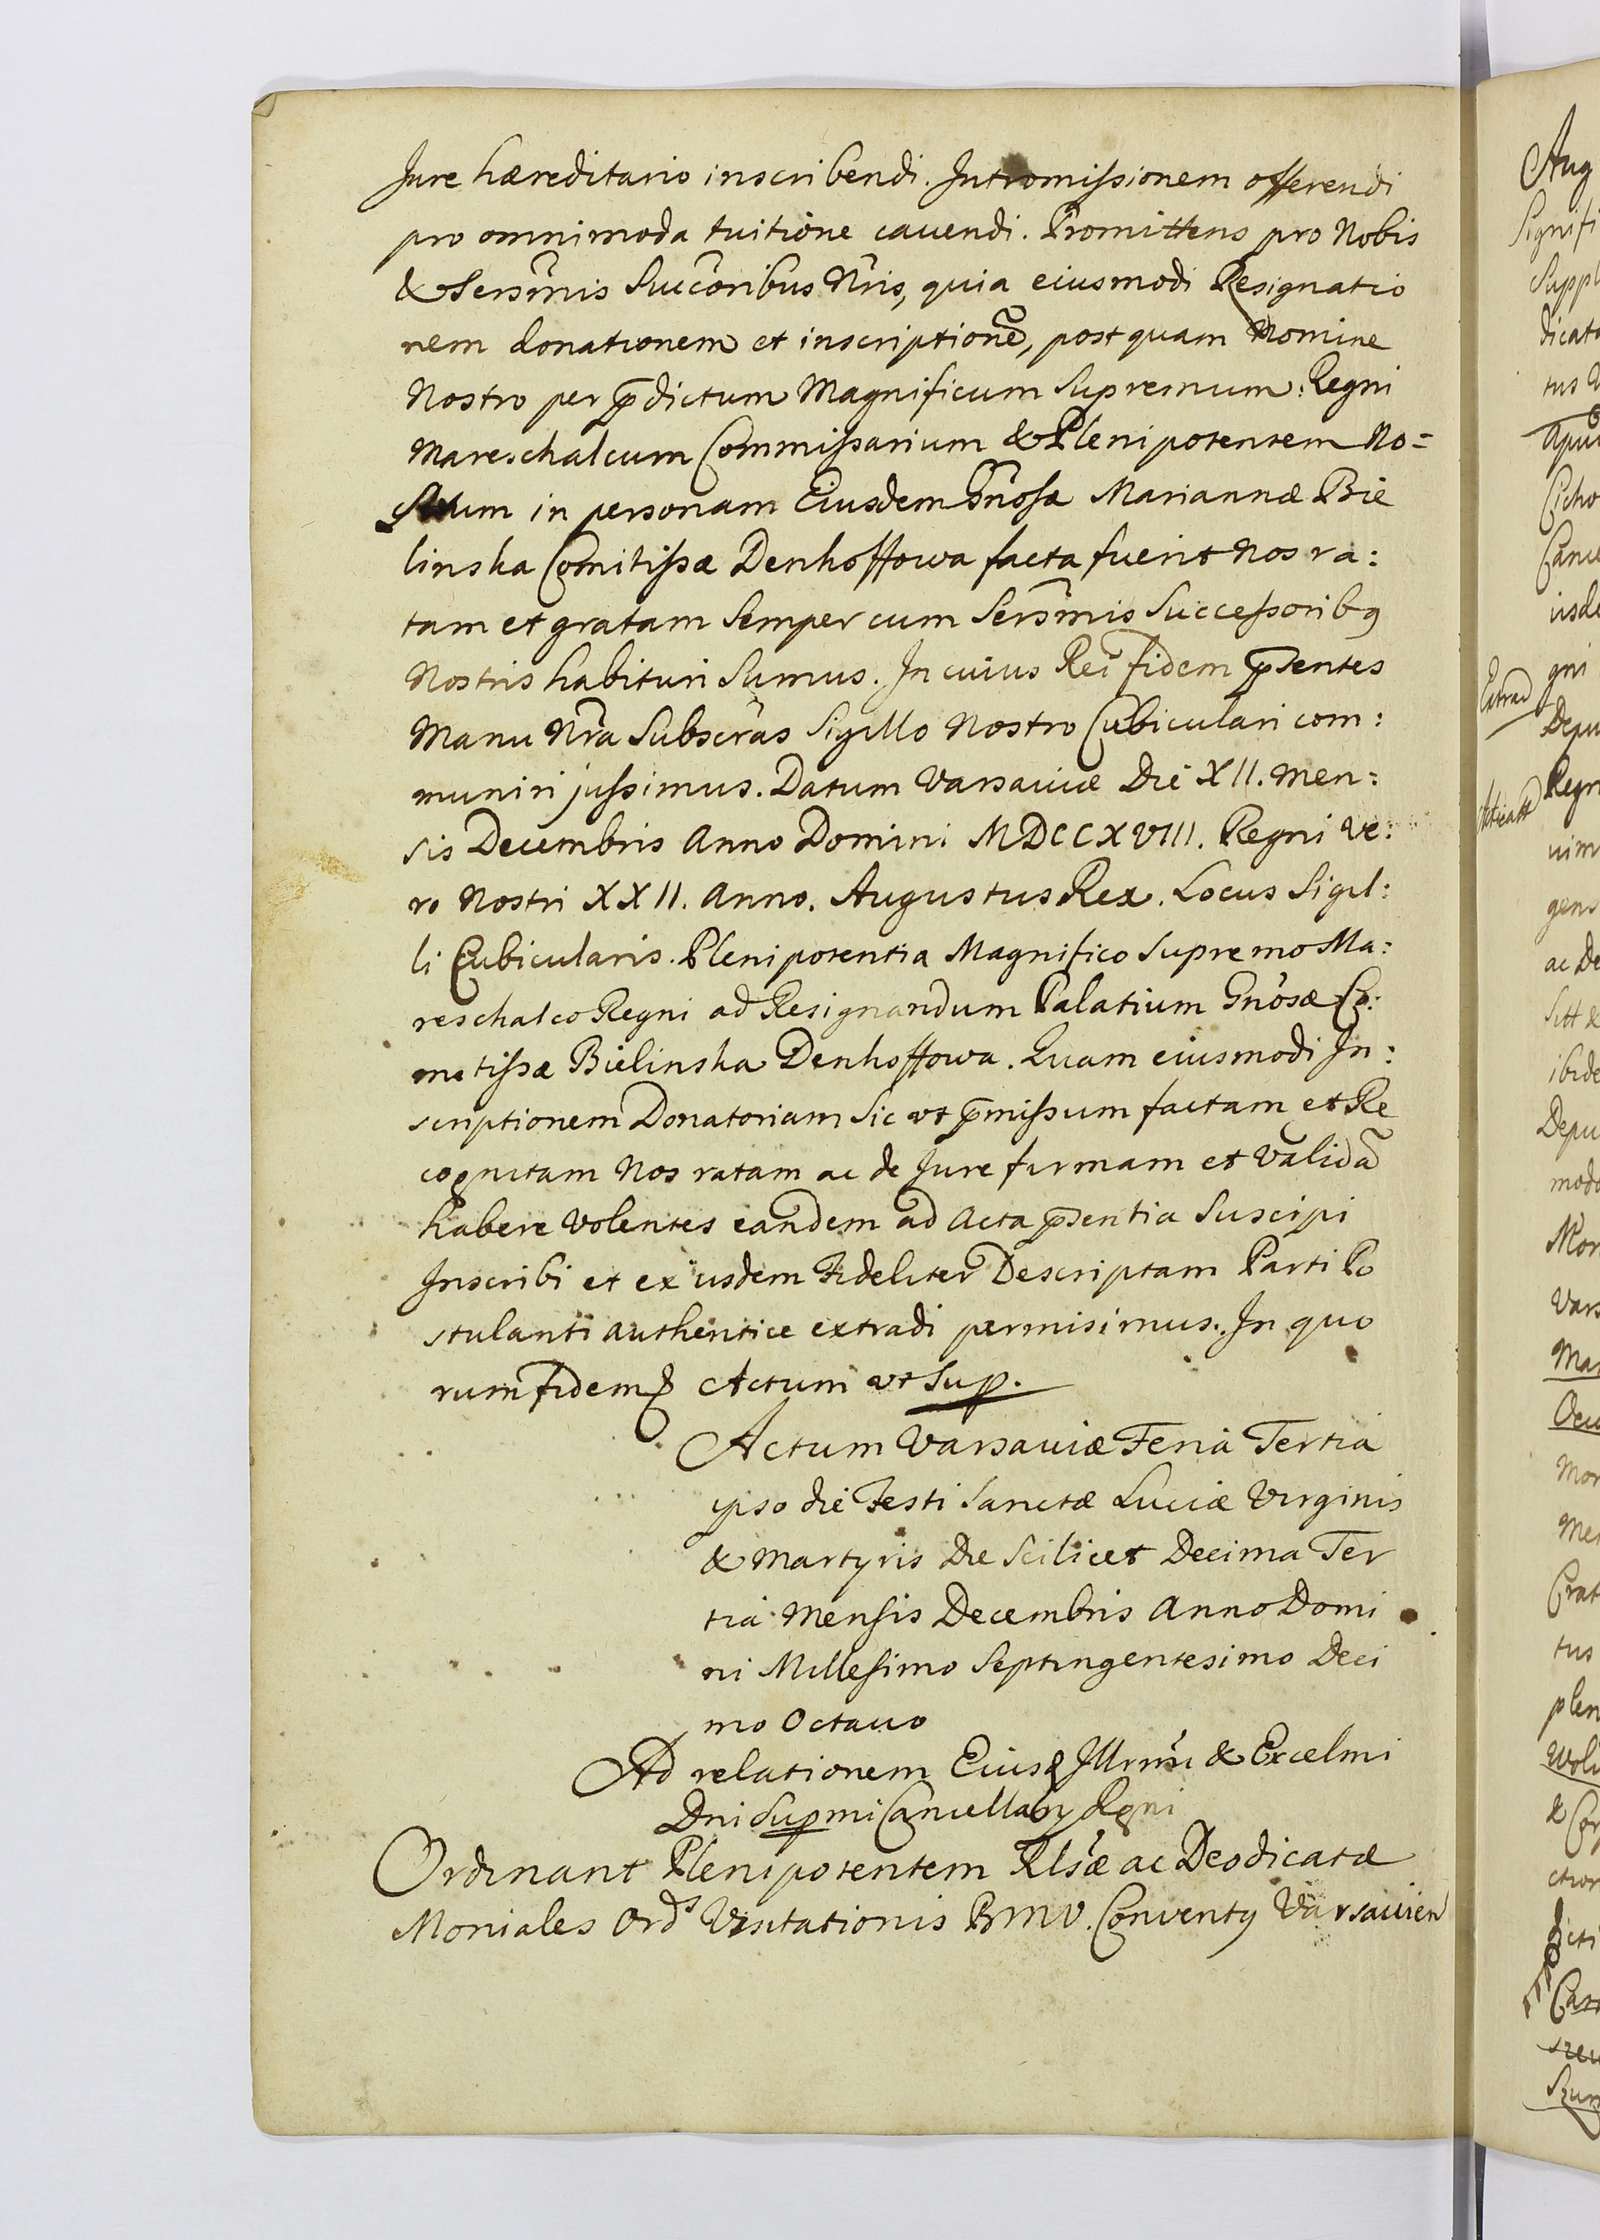 Jure hæreditario inscribendi. Intromissionem offerendi
pro omnimoda tuitione cauendi. Promittens pro Nobis
& Sersm̃is Succõribus Nr̃is, quia eiusmodi Resignatio
nem donationem et inscriptionẽ, post quam Nomine
Nostro per p̃dictum Magnificum Supremum Regni
Mareschalcum Commissarium & Plenipotentem No=
strum in personam Eiusdem Gñosæ Mariannæ Bie
linska Comitissæ Denhoffowa facta fuerit Nos ra:
tam et gratam Semper cum Sersm̃is Successorib9
Nostris habituri Sumus. In cuius Rei fidem p̃sentes
Manu Nr̃a Subscr̃as Sigillo Nostro Cubiculari com:
muniri jussimus. Datum Varsauiæ Die XII. Men:
sis Decembris Anno Domini MDCCXVIII. Regni Ve:
ro Nostri XXII. Anno. Augustus Rex. Locus Sigil:
li Cubicularis. Plenipotentia Magnifico Supremo Ma:
reschalco Regni ad Resignandum Palatium Gnõsæ Co:
mitissæ Bielinska Denhoffowa. Quam eiusmodi In:
scriptionem Donatoriam Sic ut p̃missum factam et Re
cognitam Nos ratam ac de Jure firmam et Validã
habere Volentes eandem ad Acta p̃sentia Suscipi
Inscribi et ex iisdem Fideliter Descriptam Parti Po
stulanti authentice extradi permisimus. In quo
rum fidem Actum ut Sup.
Actum Varsauiæ Feria Tertia
ipso die Festi Sanctæ Luciæ Virginis
& Martyris Die Scilicet Decima Ter
tia Mensis Decembris Anno Domi
ni Millesimo Septingentesimo Deci
mo Octauo
Ad relationem Eiusd Illrmi & Excelmi
Dni Supmi Cancellarÿ Regni
Ordinant Plenipotentem Rlsæ ac Deodicatæ
Moniales Ords Visitationis BMV. Conventg Varsauien
Aug
Signifi
Suppl
dicat
tus
apu
Cicho
Canc
iisde
gni
Depu
Regn
uim
gens
ac De
Sitt &
ibide
Depu
modo
Mon
Vars
Mar
Ocu
Mor
Mer
Crat
tus
plen
Wol
& Cor
ction
dicti